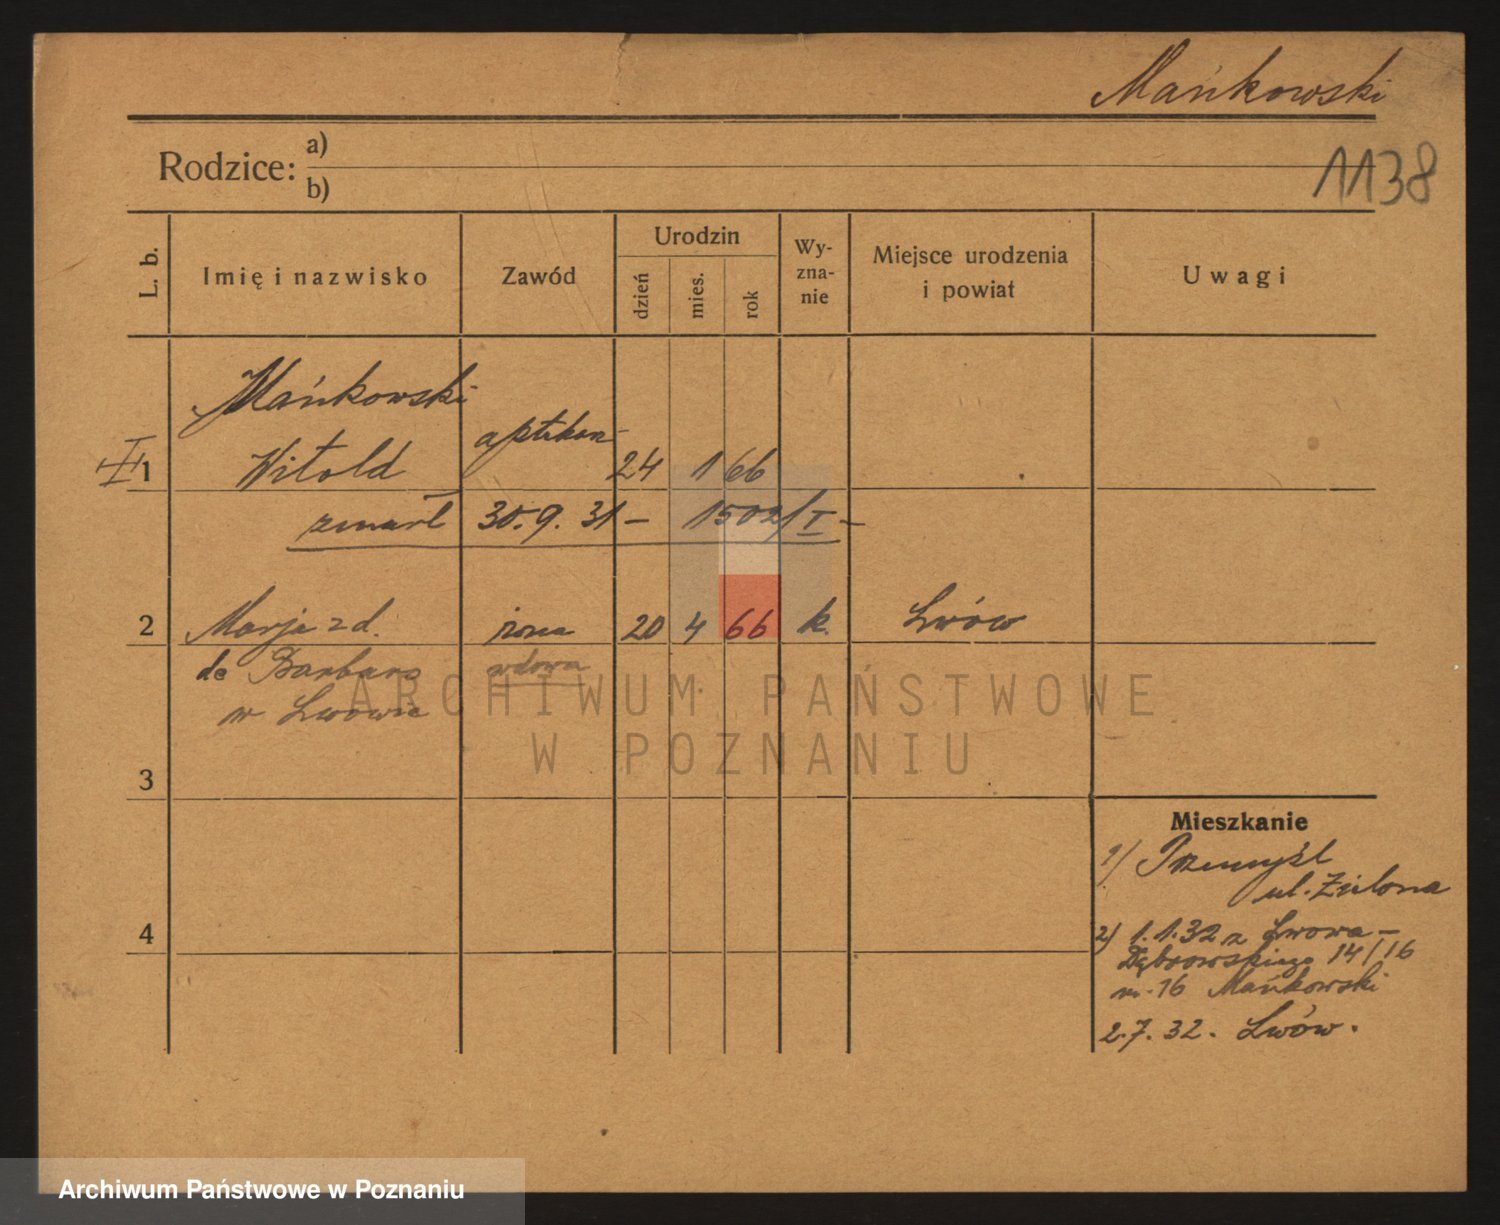 Mańkowski
1138
Rodzice: a)
b)
L. b.
Imię i nazwisko
Zawód
Urodzin
dzień
mies.
rok
Wy-
zna-
nie
Miejsce urodzenia
i powiat
Uwagi
Mańkowski
I 1 Witold aptekarz 24 1 66
zmarł 30.9.31 – 1502/I –
2 Marja z d. żona 20 4 66 k. Lwów
de Barbaro wdowa
w Lwowie
3
4
Mieszkanie
1) Przemyśl
ul. Zielona
2) 1.1.32 z Lwowa –
Dąbrowskiego 14/16
m. 16 Mańkowski
2.7.32. Lwów.
ARCHIWUM PAŃSTWOWE
W POZNANIU
Archiwum Państwowe w Poznaniu